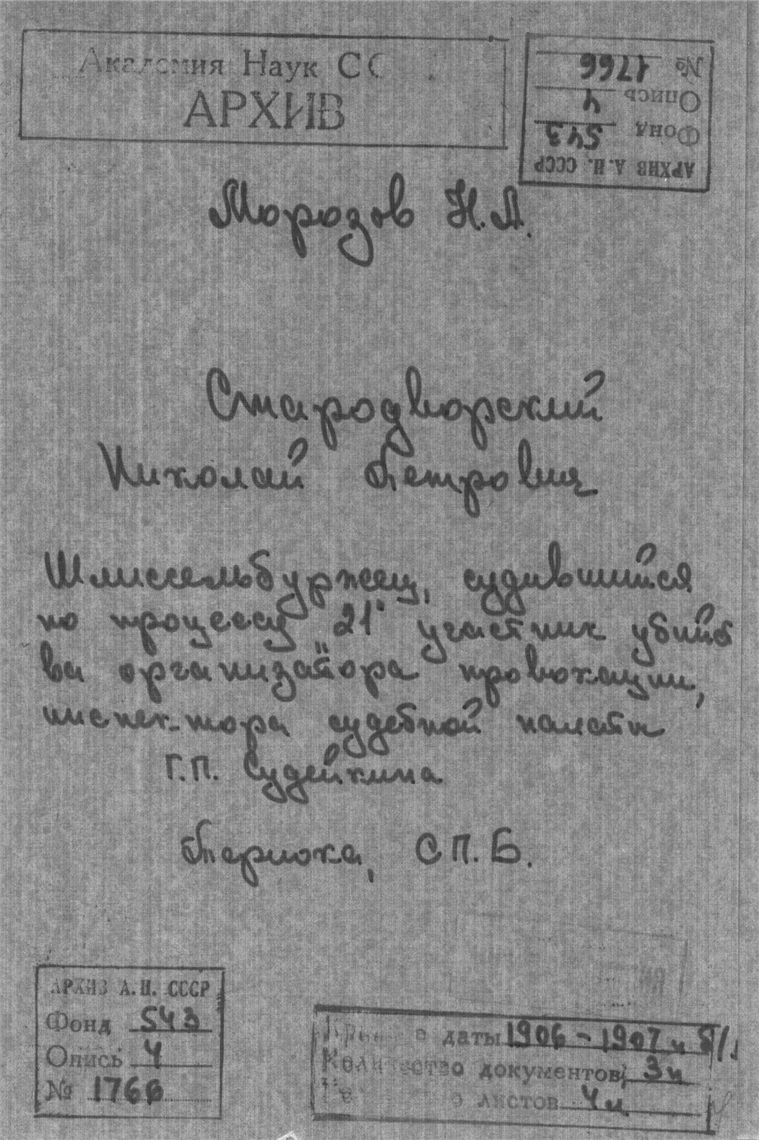 Академия Наук СС
АРХИВ
АРХИВ А.Н. СССР
Фонд 543
Опись 4
№ 1766
Морозов Н.А.
Стародворский
Николай Петрович
Шлиссельбуржец, судившийся
по процессу "21" участник убийст
ва организатора провокации,
инспектора судебной палаты
Г.П. Судейкина
Териока, С.П.Б.
АРХИВ А.Н. СССР
Фонд 543
Опись 4
№ 1766
даты 1906 - 1907 и б/д
Количество документов 3 и
листов 4 л